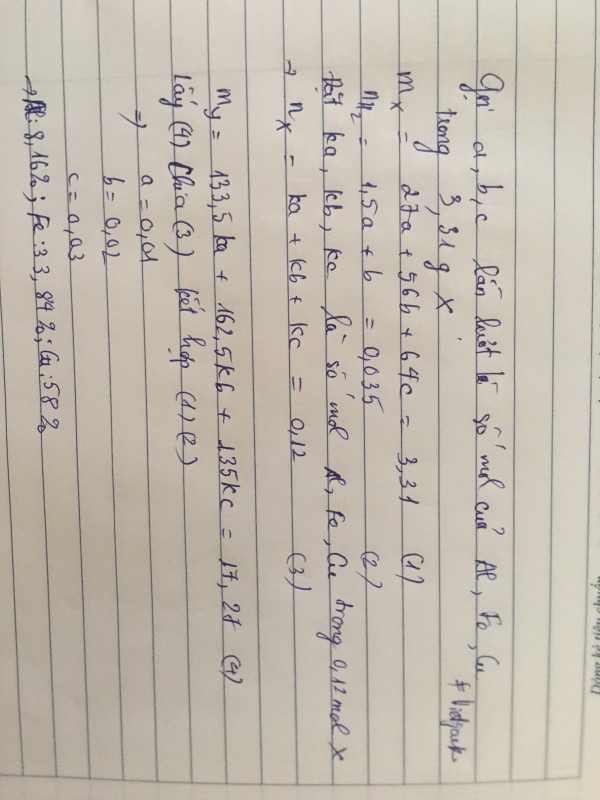 Gọi a, b, c lần lượt là số mol của Al, Fe, Cu
trong 3,31g X
mX = 27a + 56b + 64c = 3,31 (1)
nH2 = 1,5a + b = 0,035 (2)
Đặt ka, kb, kc là số mol Al, Fe, Cu trong 0,12 mol X
→ nX = ka + kb + kc = 0,12 (3)
mY = 133,5ka + 162,5kb + 135kc = 17,27 (4)
Lấy (4) chia (3) kết hợp (1) (2)
⇒ a = 0,01
b = 0,02
c = 0,03
→ Al: 8,16%; Fe: 33,84%; Cu: 58%